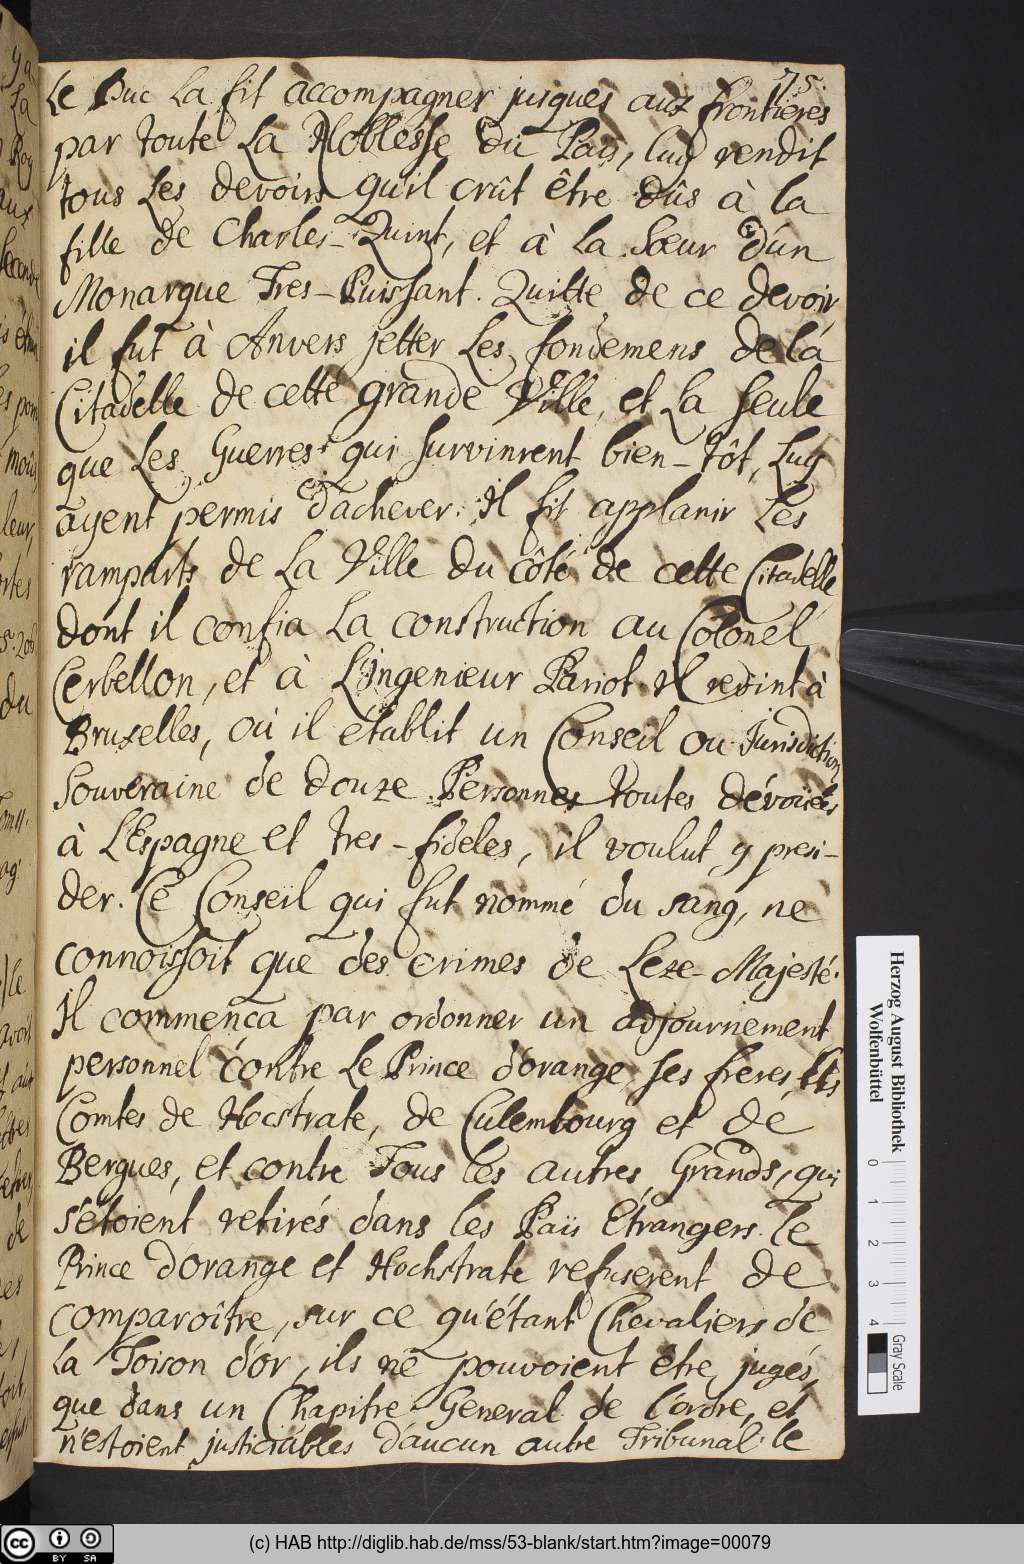 75.
Le Duc La fit accompagner jusques aux frontieres
par toute La Noblesse du Païs, luy rendit
tous Les devoirs qu'il crût être dûs à la
fille de Charles-Quint, et à La Sœur d'un
Monarque Tres-Puissant. Quitte de ce devoir
il fut à Anvers jetter Les fondemens de la
Citadelle de cette grande Ville, et La seule
que Les Guerres qui survinrent bien-tôt, Luy
ayent permis d'achever. Il fit applanir Les
ramparts de La Ville du côté de cette Citadelle
dont il confia La construction au Colonel
Cerbellon, et à L'Ingenieur Pariot. Il revint à
Bruxelles, où il établit un Conseil ou Jurisdiction
Souveraine de douze Personnes toutes dévoüées
à L'Espagne et tres-fideles, il voulut y presi-
der. Ce Conseil qui fut nommé du sang, ne
connoissoit que des crimes de Leze-Majesté.
Il commença par ordonner un adjournement
personnel contre Le Prince d'orange, ses freres, les
Comtes de Hocstrate, de Culembourg et de
Bergues, et contre Tous les autres Grands, qui
s'étoient retirés dans les Païs Etrangers. le
Prince d'orange et Hochstrate refuserent de
comparoître, sur ce qu'étant Chevaliers de
La Toison d'or, ils ne pouvoient être jugés,
que dans un Chapitre General de l'ordre, et
n'estoient justiciables d'aucun autre Tribunal. le
Herzog August Bibliothek
Wolfenbüttel
0 1 2 3 4
Gray Scale
CC BY SA
(c) HAB http://diglib.hab.de/mss/53-blank/start.htm?image=00079